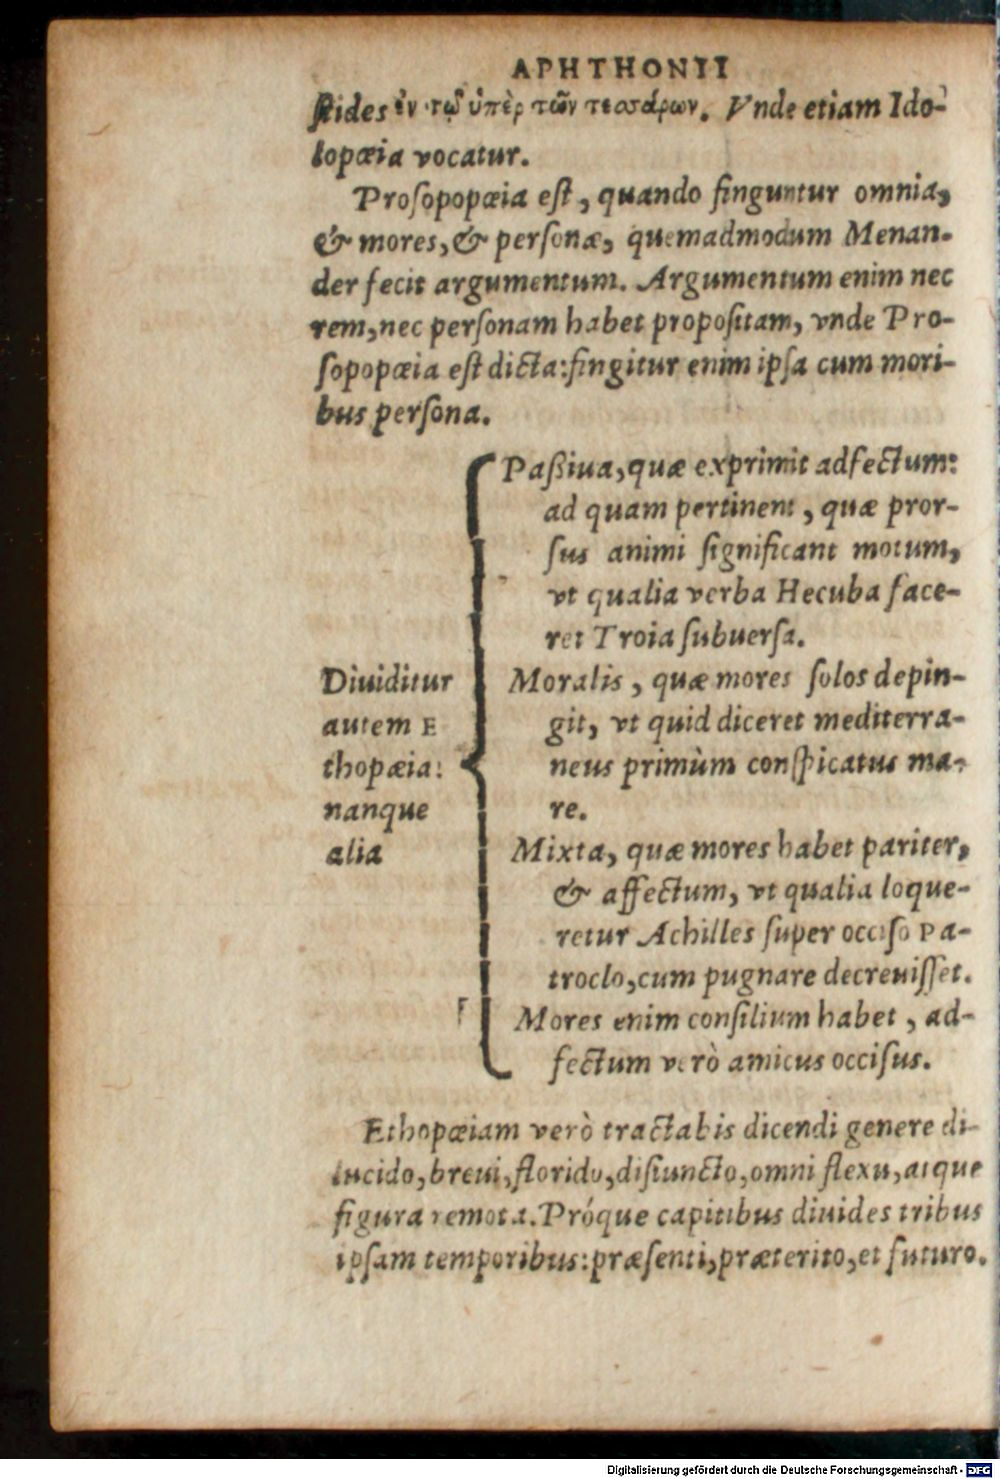 APHTHONII
ſtides ἐν τῷ ὑπὲρ τῶν τεσσάρων. Vnde etiam Ido-
lopœia vocatur.
Proſopopœia eſt, quando finguntur omnia,
& mores, & perſonæ, quemadmodum Menan-
der fecit argumentum. Argumentum enim nec
rem, nec perſonam habet propoſitam, vnde Pro-
ſopopœia eſt dicta: fingitur enim ipſa cum mori-
bus perſona.
Diuiditur
autem E
thopœia:
nanque
alia
Paßiua, quæ exprimit adfectum:
ad quam pertinent, quæ pror-
ſus animi ſignificant motum,
vt qualia verba Hecuba face-
ret Troia ſubuerſa.
Moralis, quæ mores ſolos depin-
git, vt quid diceret mediterra-
neus primùm conſpicatus ma-
re.
Mixta, quæ mores habet pariter,
& affectum, vt qualia loque-
retur Achilles ſuper occiſo Pa-
troclo, cum pugnare decreuiſſet.
Mores enim conſilium habet, ad-
fectum verò amicus occiſus.
Ethopœiam verò tractabis dicendi genere di-
lucido, breui, florido, diſiuncto, omni flexu, atque
figura remota. Próque capitibus diuides tribus
ipſam temporibus: præſenti, præterito, et futuro.
Digitalisierung gefördert durch die Deutsche Forschungsgemeinschaft - DFG